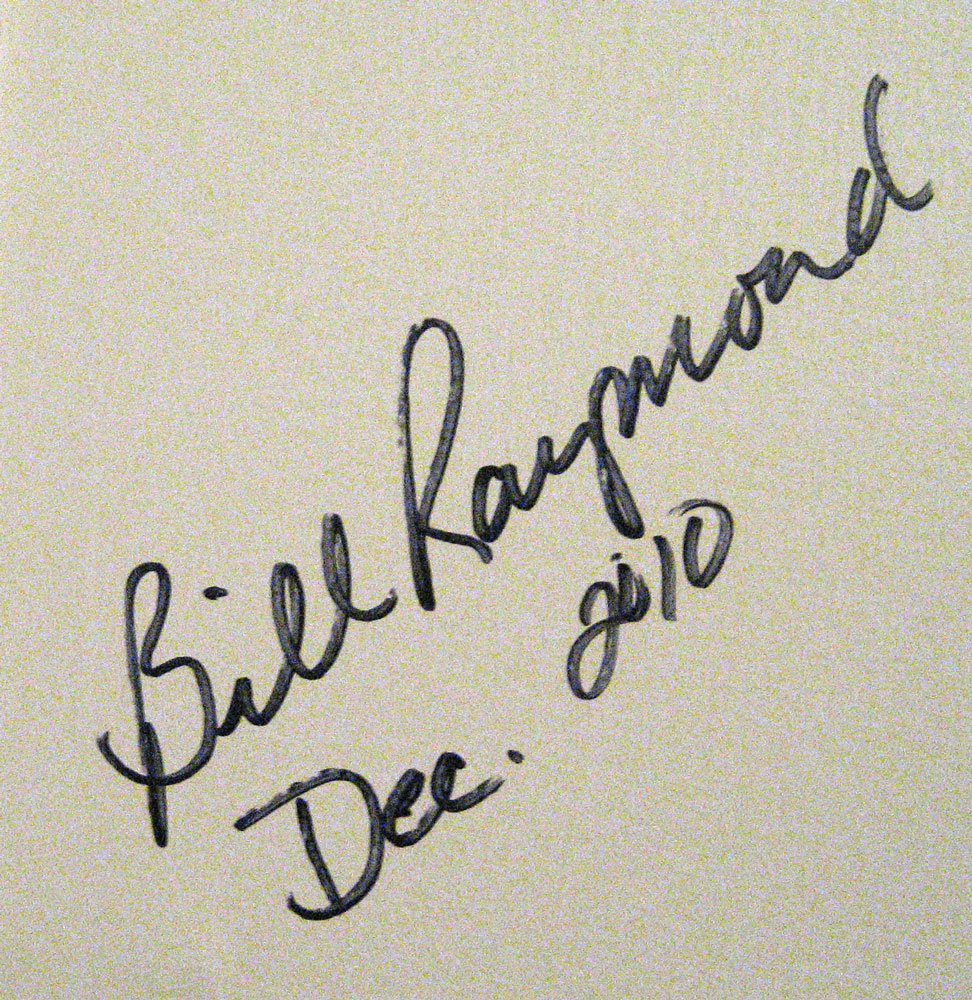 Bill Raymond
Dec. 2010